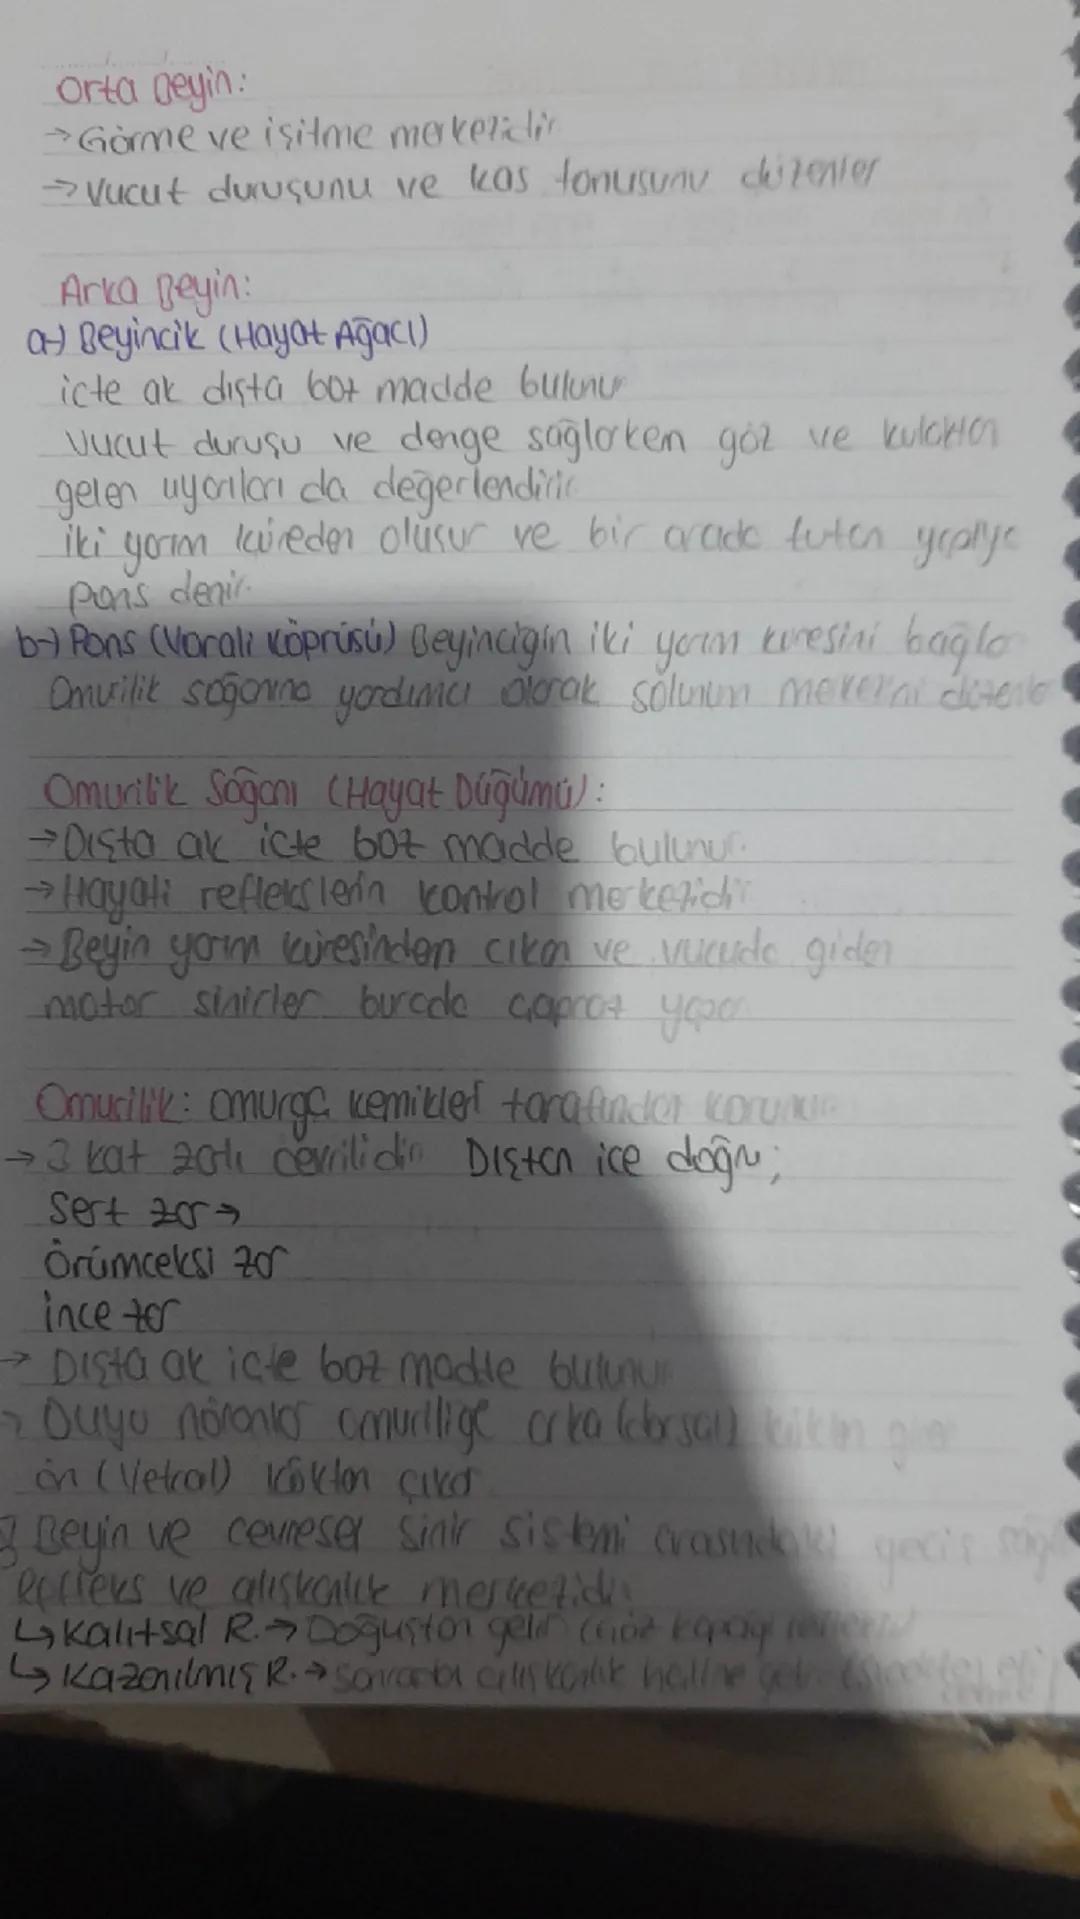 Orta Beyin:
→Görme ve işitme merkezidir
→Vucut duruşunu ve kas tonusunu düzenler
Arka Beyin:
a-) Beyincik (Hayat Ağacı)
içte ak dışta boz madde bulunur
Vucut duruşu ve denge sağlarken göz ve kulaktan
gelen uyarıları da değerlendirir
iki yarım küreden oluşur ve bir arada tutan yapıya
pons denir.
b-) Pons (Varoli köprüsü) Beyinciğin iki yarım küresini bağlar
Omurilik soğanına yardımcı olarak solunum merkezini düzenler
Omurilik Soğanı (Hayat Düğümü):
→Dışta ak içte boz madde bulunur.
→Hayati reflekslerin kontrol merkezidir
→Beyin yarım küresinden çıkan ve vucuda giden
motor sinirler burada çapraz yapar
Omurilik: omurga kemikleri tarafından korunur.
→3 kat zarla çevrilidir Dıştan içe doğru;
Sert zar→
Örümceksi zar
İnce zar
→ Dışta ak içte boz madde bulunur
→ Duyu nöronlar omuriliğe arka (dorsal) kökten girer
ön (Vetral) kökten çıkar
Beyin ve çevresel sinir sistemi arasındaki geçiş
Refleks ve alışkanlık merkezidir
↳Kalıtsal R.→Doğuştan gelir (Göz kapağı refleksi)
↳Kazanılmış R.→Sonradan alışkanlık haline gelir